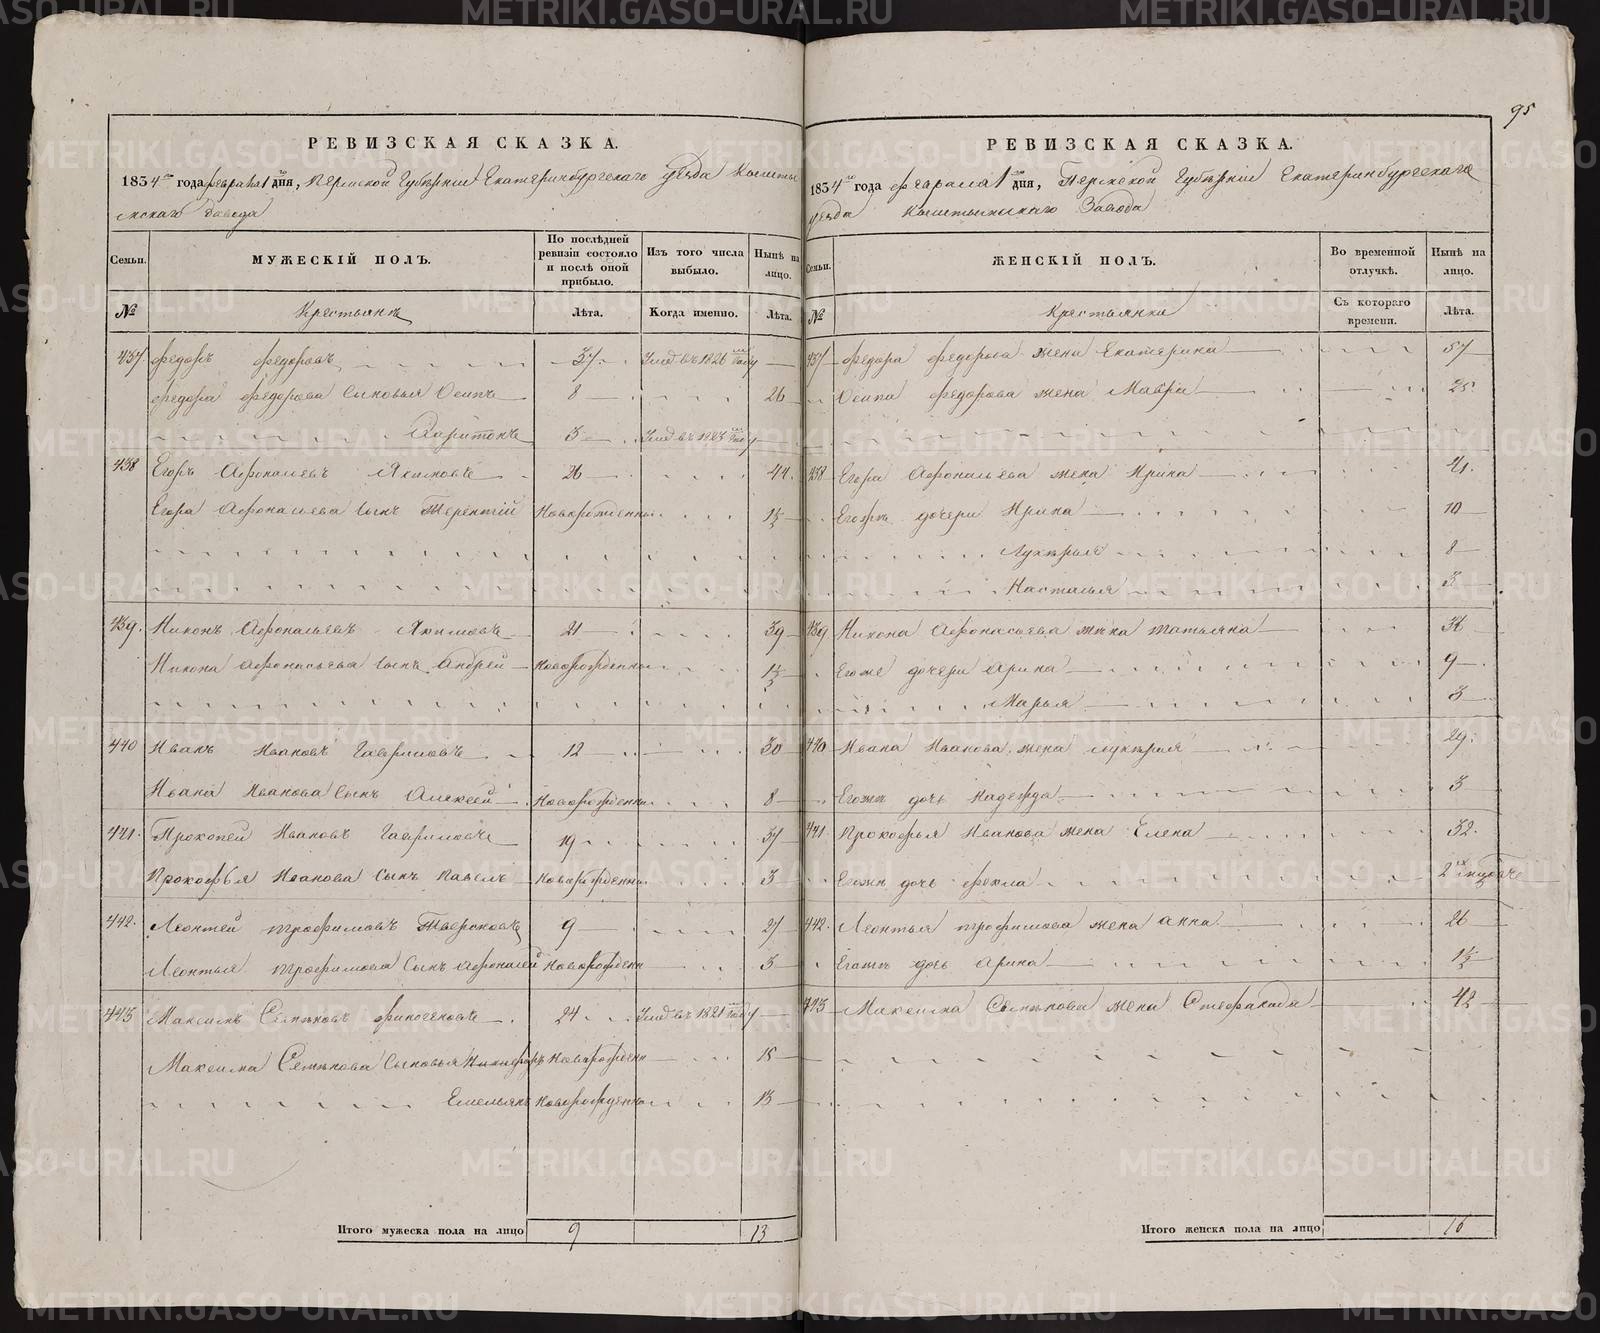 95
РЕВИЗСКАЯ СКАЗКА.
1834 го года февраля 1 дня, Пермской Губернiи Екатеринбургскаго уезда Кышты
мскаго Завода
Семьи. МУЖЕСКІЙ ПОЛЪ. По послѣдней ревизіи состояло и послѣ оной прибыло. Изъ того числа выбыло. Нынѣ на лицо.
№ Крестьянъ Лѣта. Когда именно. Лѣта.
437 Федоръ Федоровъ 37 Умер въ 1826 году
Федора Федорова Сыновья Осипъ 8 26
Харитонъ 3 Умер въ 1823 году
438 Егоръ Афонасьевъ Якимовъ 26 44
Егора Афонасьева Сынъ Терентій Новорожденны 1½
439. Никонъ Афонасьевъ Якимовъ 21 39
Никона Афонасьева Сынъ Андрей Новорожденны 1½
440 Иванъ Ивановъ Гавриловъ 12 30
Ивана Иванова Сынъ Алексей Новорожденны 8
441. Прокопей Ивановъ Гавриловъ 19 37
Прокофья Иванова Сынъ Павелъ Новорожденны 3
442. Леонтей Трофимовъ 9 27
Леонтья Трофимова Сынъ Афонасей Новорожденн 3
443 Максимъ Семеновъ Финогеновъ 24 Умер въ 1821 году
Максима Семенова Сыновья Никифоръ Новорожден 15
Емельянъ Новорожденны 13
Итого мужеска пола на лицо 9 13
РЕВИЗСКАЯ СКАЗКА.
1834 го года Февраля 1 дня, Пермской Губернiи Екатеринбургскаго
уезда Кыштымскаго Завода
Семьи. ЖЕНСКІЙ ПОЛЪ. Во временной отлучкѣ. Нынѣ на лицо.
№ Крестьянки Съ котораго времени. Лѣта.
437 Федора Федорова жена Екатерина 57
Осипа Федорова жена Мавра 25
438 Егора Афонасьева жена Ирина 41
Егожъ дочери Ирина 10
Лукерья 8
Настасья 3
439 Никона Афонасьева жена Татьяна
Егоже дочери Арина 9
Марья 3
440 Ивана Иванова жена Лукерья 29
Егожъ дочь Надежда 3
441 Прокофья Иванова жена Елена 32
Егожъ дочь Фекла 2
442. Леонтья Трофимова жена Анна 26
Егожъ дочь Арина 1½
443 Максима Семенова жена Стефанида 42
Итого женска пола на лицо 16
METRIKI.GASO-URAL.RU